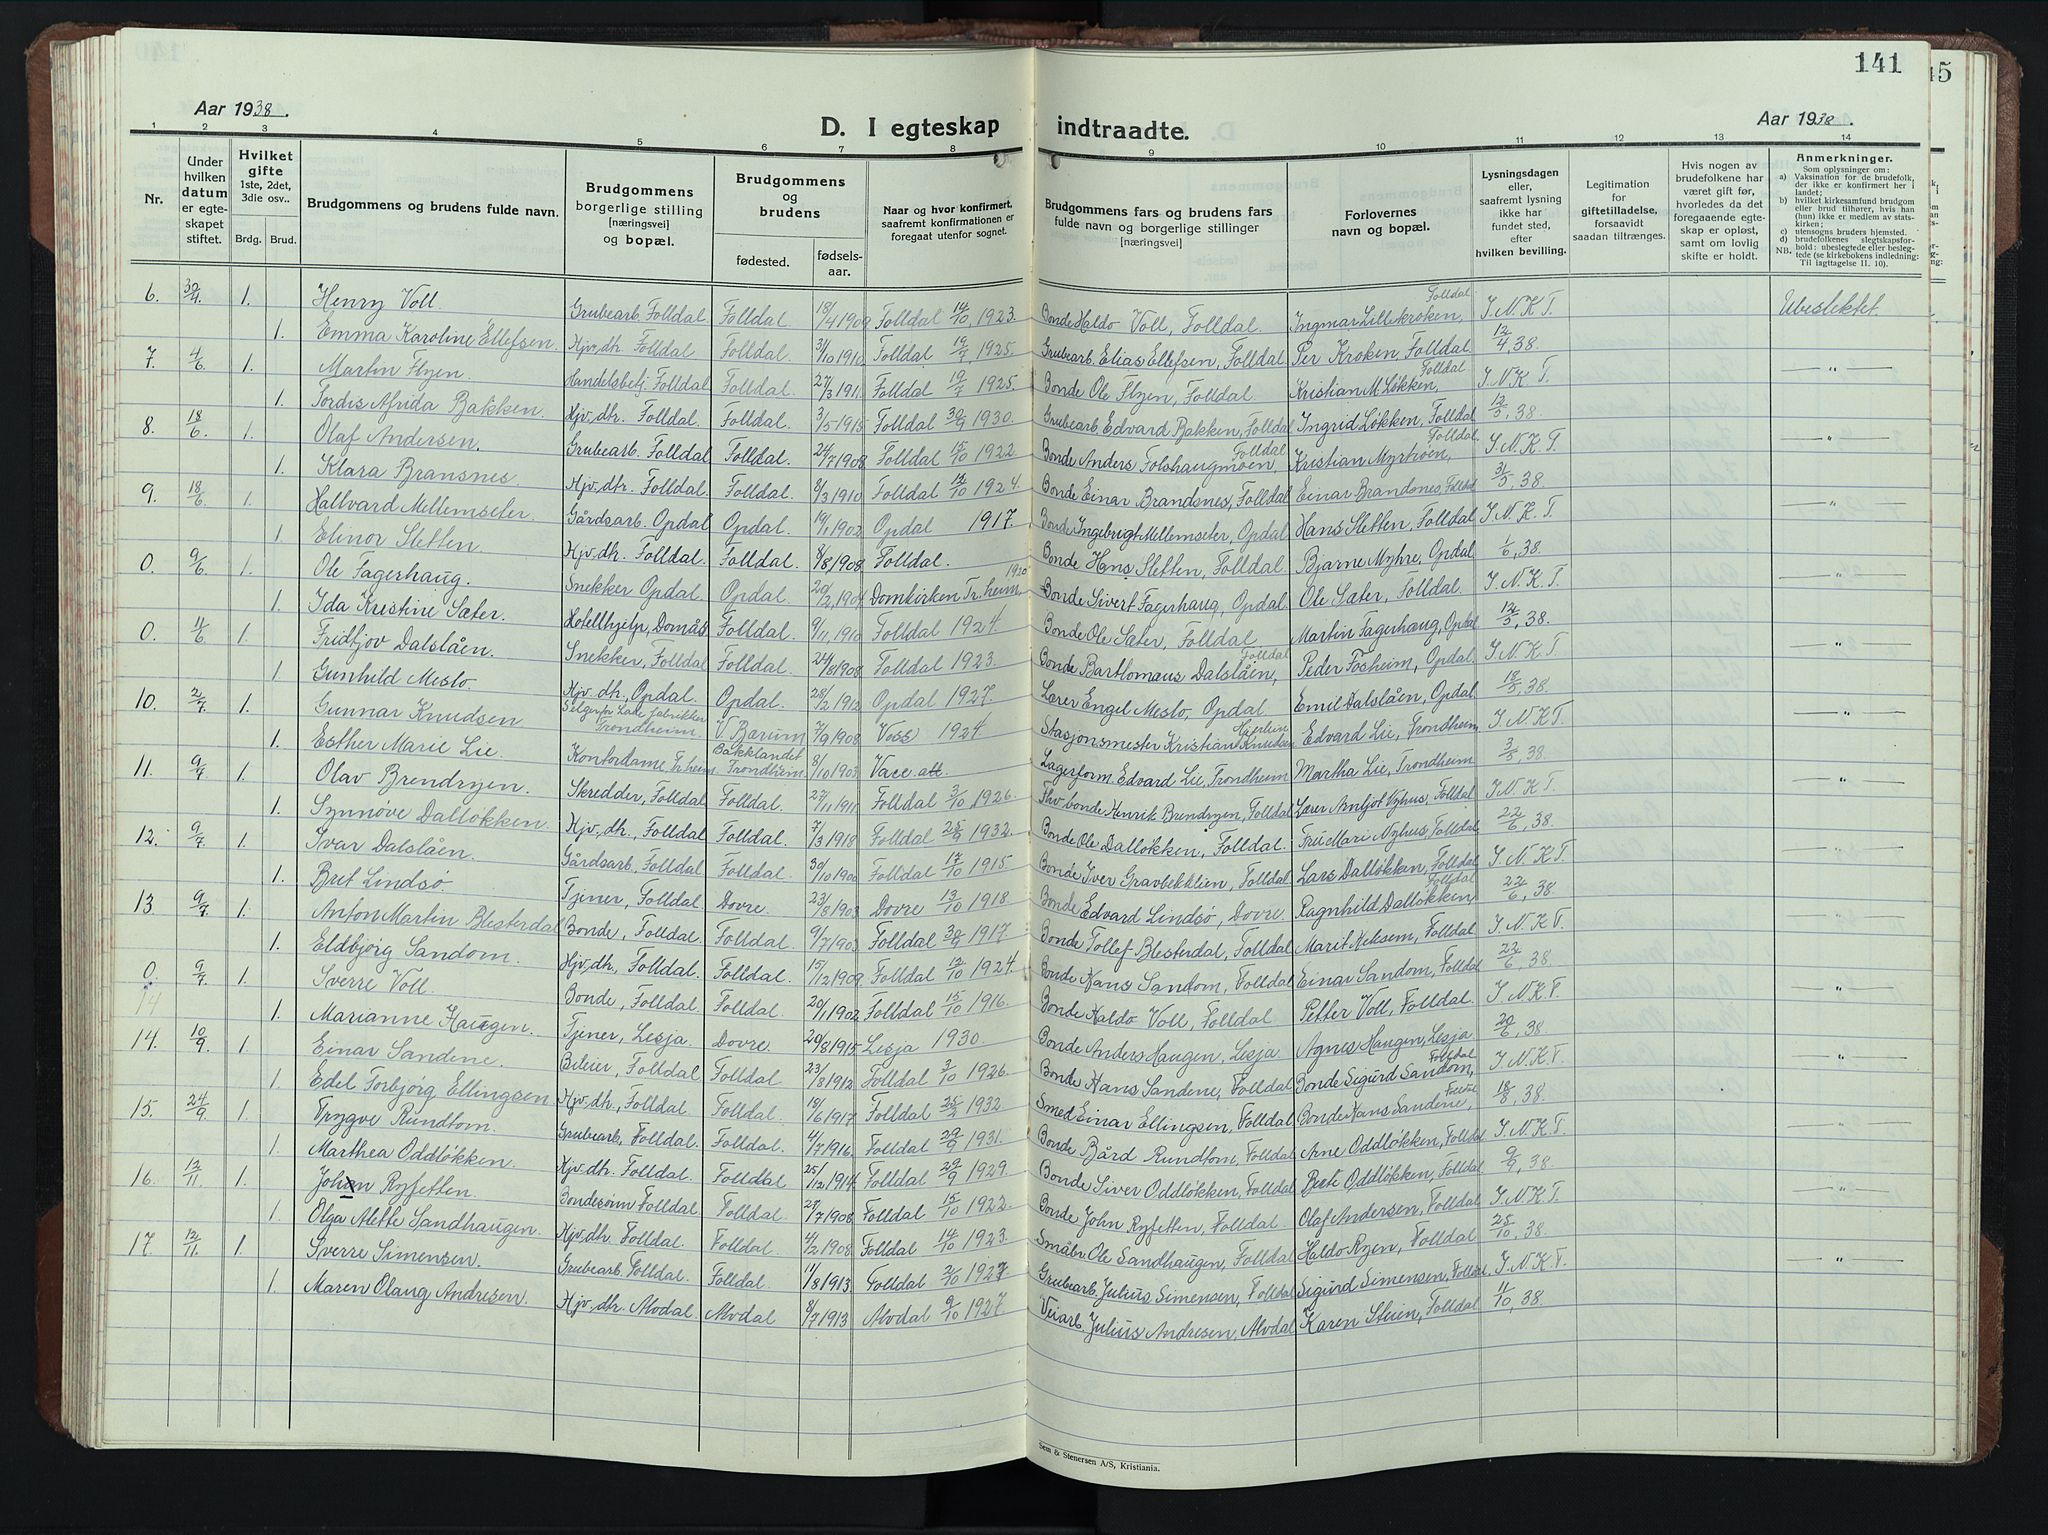 141
45
Aar 1938.
D. I egteskap indtraadte.
Aar 1938.
1 2 3 4 5 6 7 8 9 10 11 12 13 14
Nr.
Under hvilken datum er egteskapet stiftet.
Hvilket gifte 1ste, 2det, 3die osv..
Brdg. Brud.
Brudgommens og brudens fulde navn.
Brudgommens borgerlige stilling [næringsvei] og bopæl.
Brudgommens og brudens
fødested. fødsels-aar.
Naar og hvor konfirmert, saafremt konfirmationen er foregaat utenfor sognet.
Brudgommens fars og brudens fars fulde navn og borgerlige stillinger [næringsvei]
Forlovernes navn og bopæl.
Lysningsdagen eller, saafremt lysning ikke har fundet sted, efter hvilken bevilling.
Legitimation for giftetilladelse, forsaavidt saadan tiltrænges.
Hvis nogen av brudefolkene har været gift før, hvorledes da det foregaaende egteskap er opløst, samt om lovlig skifte er holdt.
Anmerkninger.
Som oplysninger om:
a) Vaksination for de brudefolk, der ikke er konfirmert her i landet;
b) hvilket kirkesamfund brudgom eller brud tilhører, hvis han (hun) ikke er medlem av statskirken;
c) utensogns bruders hjemsted.
d) brudefolkenes slegtskapsforhold: ubeslegtede eller beslegtede (se kirkebokens indledning:
NB. Til iagttagelse II. 10).
6. 30/4. 1. Henry Voll Grubearb. Folldal Folldal 18/4 1909 Folldal 14/10 1923. Bonde Haldo Voll, Folldal. Ingmar Lillekroken, Folldal I. N. K. T. Ubeslektet
1. Emma Karoline Ellefsen Hjv. dtr. Folldal Folldal. 31/10 1910 Folldal 19/7 1925. Grubearb. Elias Ellefsen, Folldal Per Kroken Folldal. 12/4, 38.
7. 4/6 1. Martin Flyen Handelsbetj. Folldal Folldal. 27/3 1911 Folldal 19/7 1925. Bonde Ole Flyen, Folldal. Kristian M. Løkken, Folldal I. N. K. T. — " —
1. Tordis Afrida Bakken. Hjv. dtr. Folldal. Folldal. 3/5 1915 Folldal 30/9 1930. Grubearb. Edvard Bakken, Folldal Ingrid Løkken, Folldal 12/5, 38.
8. 18/6 1. Olaf Andersen. Grubearb. Folldal. Folldal. 24/7 1908 Folldal 15/10 1922 Bonde Anders Folshaugmoen, Folldal Kristian Myrtrøen, Folldal. I. N. K. T. — " —
1. Klara Bransnes. Hjv. dtr. Folldal. Folldal. 8/3 1910 Folldal 12/10 1924. Bonde Einar Brandsnes, Folldal Einar Brandsnes, Folldal 31/5, 38.
9. 18/6 1. Hallvard Mellemseter. Gårdsarb. Opdal Opdal. 19/1 1902 Opdal 1917. Bonde Ingebrigt Mellemseter, Opdal Hans Sletten, Folldal I. N. K. T. — " —
1. Elinor Sletten. Hjv. dtr. Folldal. Folldal. 8/8 1908 Folldal. Bonde Hans Sletten, Folldal. Bjarne Myhre, Opdal 1/6, 38.
0. 9/6 1. Ole Fagerhaug. Snekker Opdal Opdal. 20/2 1904 Domkirken Tr.heim 1920 Bonde Sivert Fagerhaug, Opdal. Ole Sæter, Folldal. I. N. K. T. — " —
1. Ida Kristine Sæter. Hotellhjelp, Domås Folldal. 9/11 1910 Folldal 1924. Bonde Ole Sæter, Folldal Martin Fagerhaug, Opdal 12/5, 38.
0. 11/6 1. Fridtjov Dalslåen. Snekker, Folldal Folldal. 24/8 1908. Folldal 1923. Bonde Bartlomæus Dalslåen, Folldal Peder Fosheim, Opdal. I. N. K. T. — " —
1. Gunhild Meslo. Hjv. dtr., Opdal. Opdal. 28/2 1912 Opdal 1927. Lærer Engel Meslo, Opdal. Emil Dalslåen, Opdal. 18/5, 38.
10. 2/7 1. Gunnar Knudsen Selger pr. Lade fabrikker Trondheim. V. Bærum 7/9 1908 Voss 1924 Stasjonsmester Kristian Knudsen Hjerkinn Edvard Lie, Trondheim I. N. K. T. — " —
1. Esther Marie Lie. Kontordame, Tr.heim Bakklandet Trondheim. 8/10 1903 Vace. att. Lagerform. Edvard Lie, Trondheim Martha Lie, Trondheim 3/5, 38.
11. 9/7 1. Olav Brendryen. Skredder, Folldal Folldal. 27/11 1911 Folldal 3/10 1926. Thv. bonde Henrik Brendryen, Folldal Lærer Arnljot Nyhus, Folldal I. N. K. T. — " —
1. Synnøve Dalløkken. Hjv. dtr., Folldal. Folldal. 7/3 1918 Folldal 25/9 1932. Bonde Ole Dalløkken, Folldal. Frú Mari Nyhus, Folldal 22/6, 38.
12. 9/7 1. Ivar Dalslåen. Gårdsarb. Folldal Folldal. 30/10 1900 Folldal 17/10 1915 Bonde Iver Gravbekklien, Folldal Lars Dalløkken, Folldal I. N. K. T. — " —
1. Brit Lindsø Tjener, Folldal Dovre. 23/8 1903 Dovre 13/10 1918. Bonde Edvard Lindsø, Dovre. Ragnhild Dalløkken, Folldal 22/6, 38.
13. 9/7 1. Anton Martin Blesterdal Bonde, Folldal. Folldal. 9/7 1903 Folldal 30/9 1917 Bonde Tollef Blesterdal, Folldal Marit Keksem, Folldal I. N. K. T. — " —
1. Eldbjørg Sandom. Hjv. dtr., Folldal. Folldal. 15/12 1909 Folldal 12/10 1924. Bonde Hans Sandom, Folldal Einar Sandom, Folldal 22/6, 38.
0. 9/7 1. Sverre Voll. Bonde, Folldal. Folldal. 20/1 1902 Folldal 15/10 1916. Bonde Haldo Voll, Folldal Petter Voll, Folldal. I. N. K. T. — " —
14
1. Marianne Haugen. Tjener, Lesja Dovre. 20/8 1915 Lesja 1930. Bonde Anders Haugen, Lesja. Agnes Haugen, Lesja 20/6, 38.
14. 10/9 1. Einar Sandene. Bileier, Folldal Folldal. 23/8 1912 Folldal 3/10 1926. Bonde Hans Sandene, Folldal Bonde Sigurd Sandom, Folldal I. N. K. T. — " —
1. Edel Torbjørg Ellingsen Hjv. dtr., Folldal. Folldal. 18/6 1917 Folldal 1932 Smed Einar Ellingsen, Folldal. Bonde Hans Sandene, Folldal 18/8, 38.
15. 24/9 1. Trygve Rundtom. Grubearb. Folldal. Folldal. 4/7 1916. Folldal 29/9 1931. Bonde Bård Rundtom, Folldal. Arne Oddløkken, Folldal I. N. K. T. — " —
1. Marthea Oddløkken. Hjv. dtr. Folldal. Folldal 25/12 1914 Folldal 29/9 1929. Bonde Siver Oddløkken, Folldal Berit Oddløkken, Folldal 9/9, 38.
16. 12/11 1. Johan Ryfetten. Bondesønn Folldal Folldal. 29/7 1908. Folldal 15/10 1922. Bonde John Ryfetten, Folldal. Olaf Andersen, Folldal I. N. K. T. — " —
1. Olga Alette Sandhaugen. Hjv. dtr. Folldal. Folldal. 4/2 1908 Folldal 14/10 1923. Småbr. Ole Sandhaugen, Folldal Haldo Ryen, Folldal 25/10, 38.
17. 12/11. 1. Sverre Simensen. Grubearb. Folldal. Folldal 11/8 1913. Folldal 2/10 1927 Grubearb. Julius Simensen, Folldal Sigurd Simensen, Folldal, I. N. K. T. — " —
1. Maren Olaug Andresen. Hjv. dtr. Alvdal. Alvdal 8/7 1913 Alvdal 9/10 1927 Veiarb. Julius Andresen, Alvdal Karen Steien, Folldal 11/10, 38.
Sem & Stenersen A/S, Kristiania.